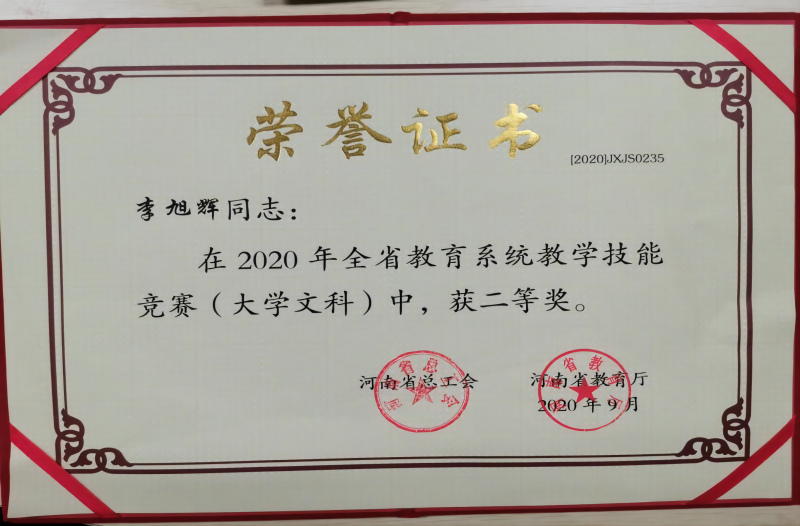 荣誉证书
[2020]JXJS0235
李旭辉同志：
在 2020 年全省教育系统教学技能
竞赛（大学文科）中，获二等奖。
河南省总工会 河南省教育厅
2020 年 9 月